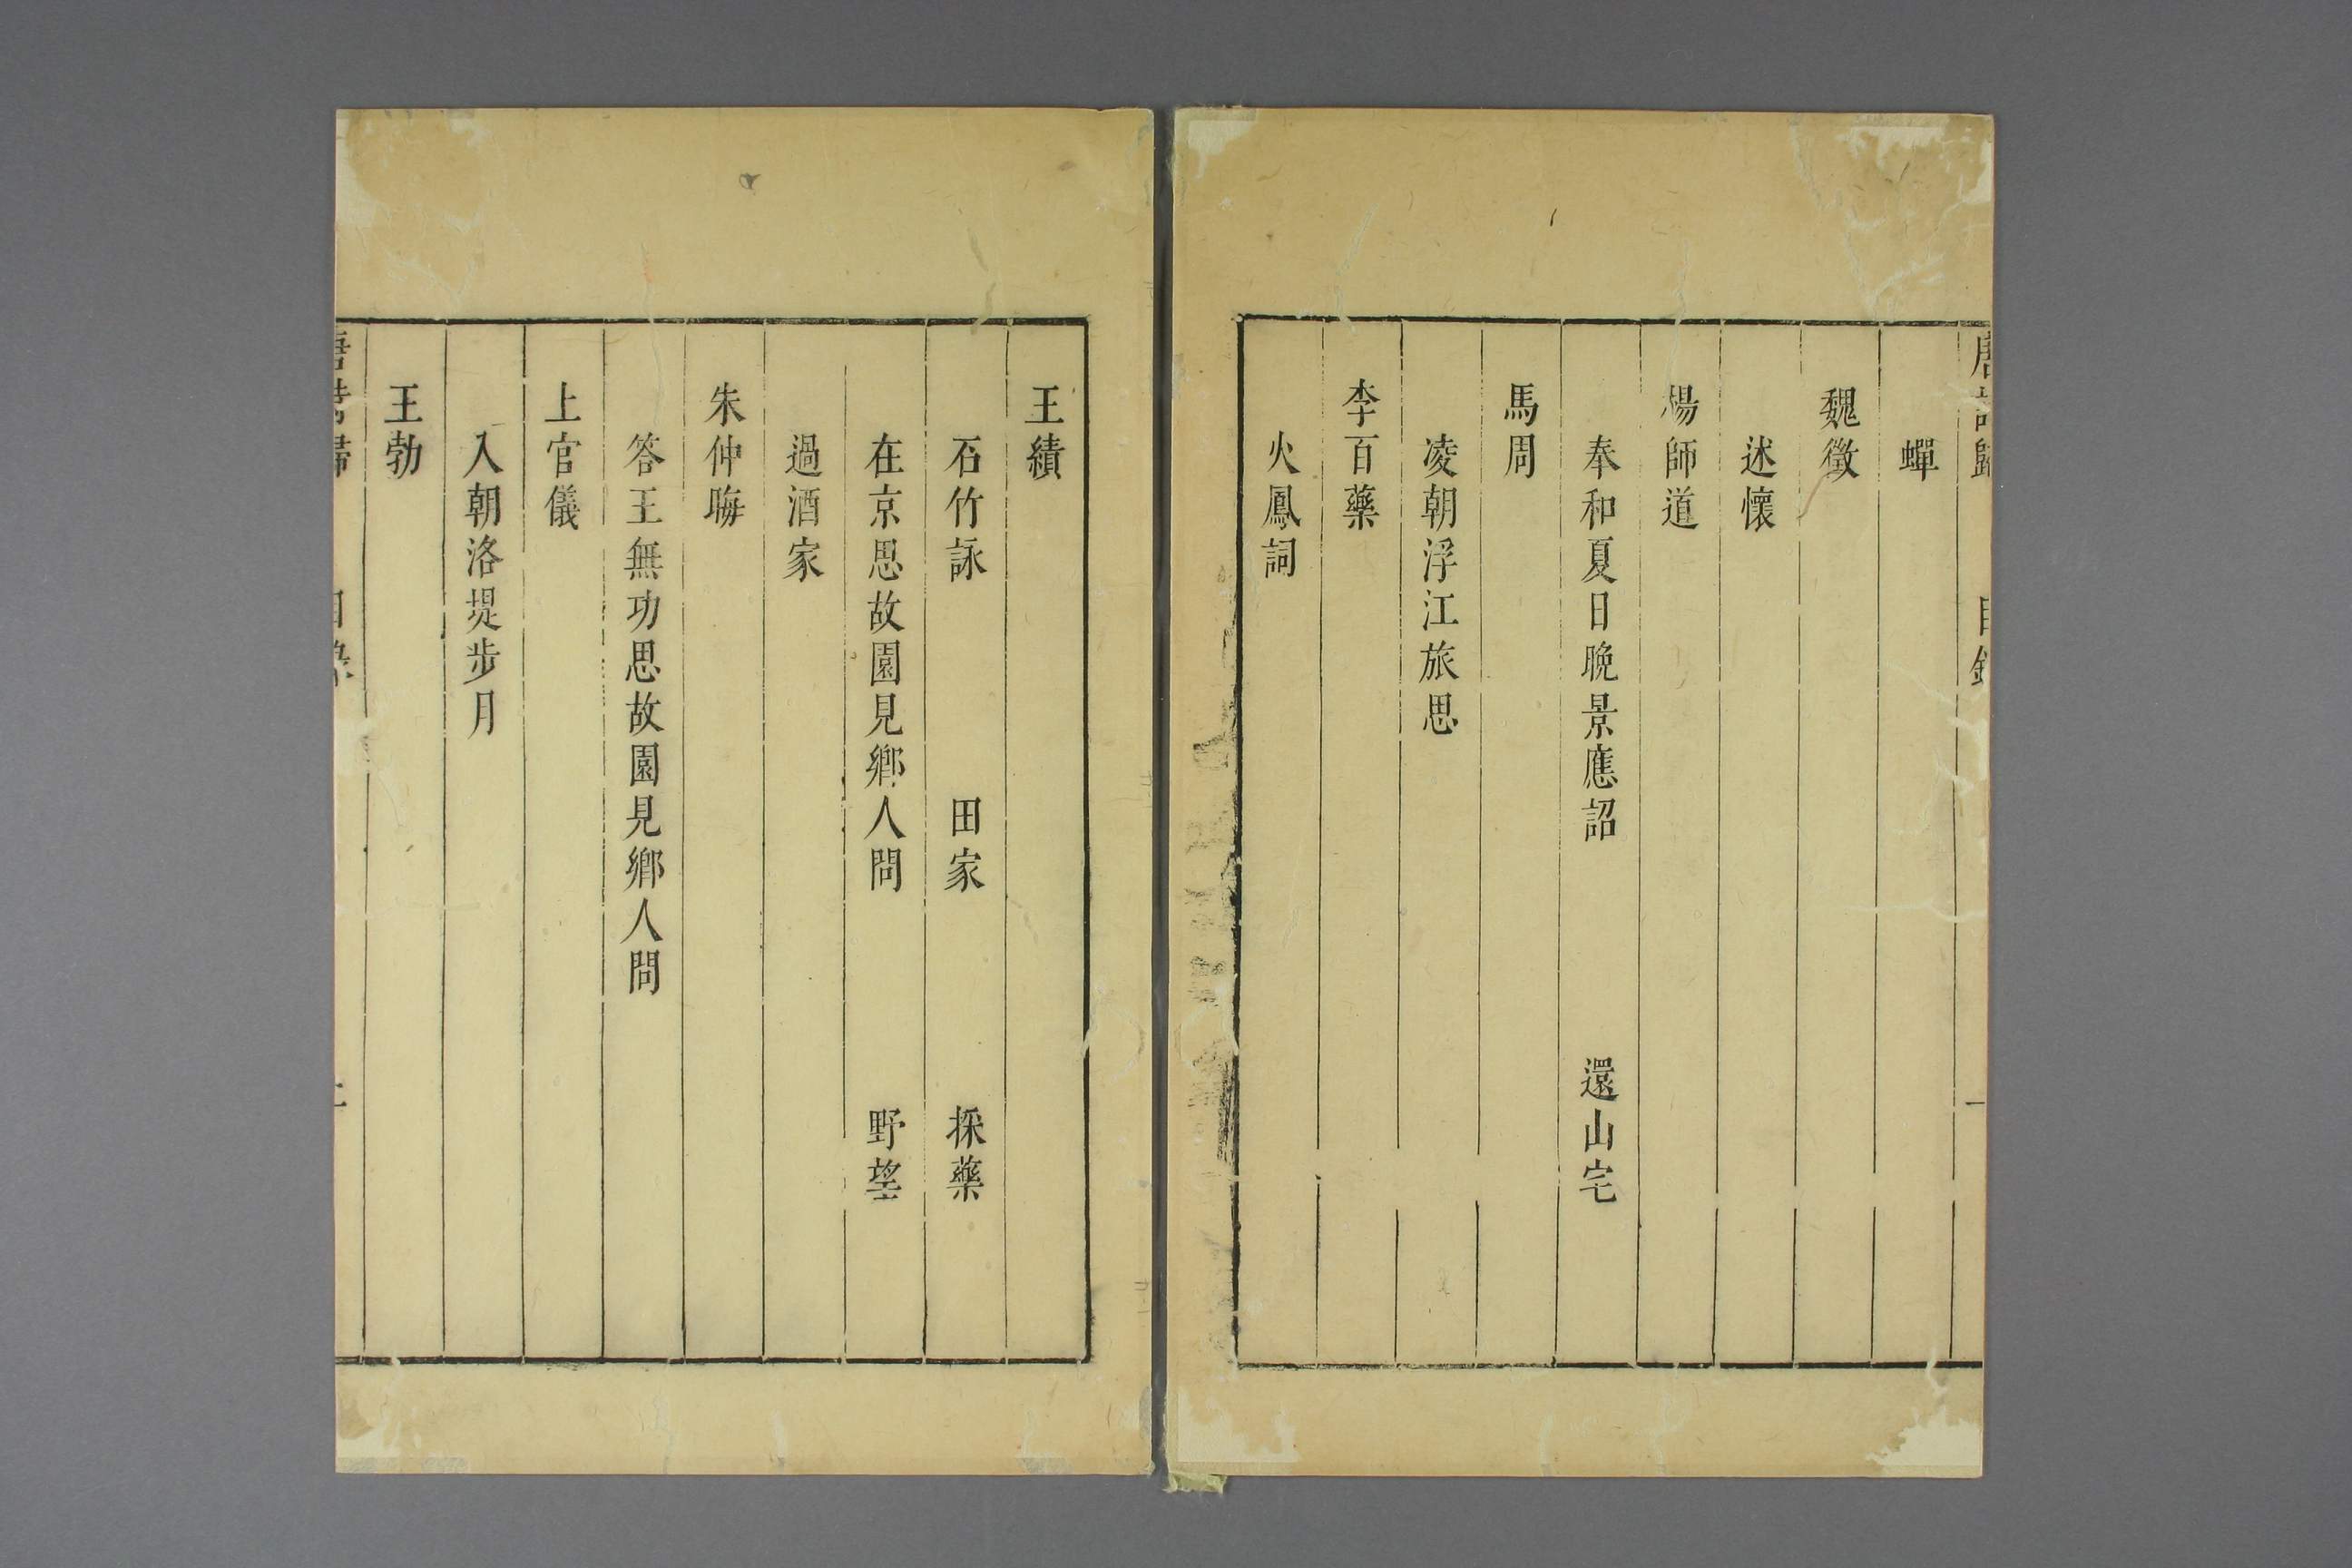 唐詩歸 目錄 一
蟬
魏徵
述懷
楊師道
奉和夏日晚景應詔 還山宅
馬周
凌朝浮江旅思
李百藥
火鳳詞
王績
石竹詠 田家 採藥
在京思故園見鄉人問 野望
過酒家
朱仲晦
答王無功思故園見鄉人問
上官儀
入朝洛堤步月
王勃
唐詩歸 目錄